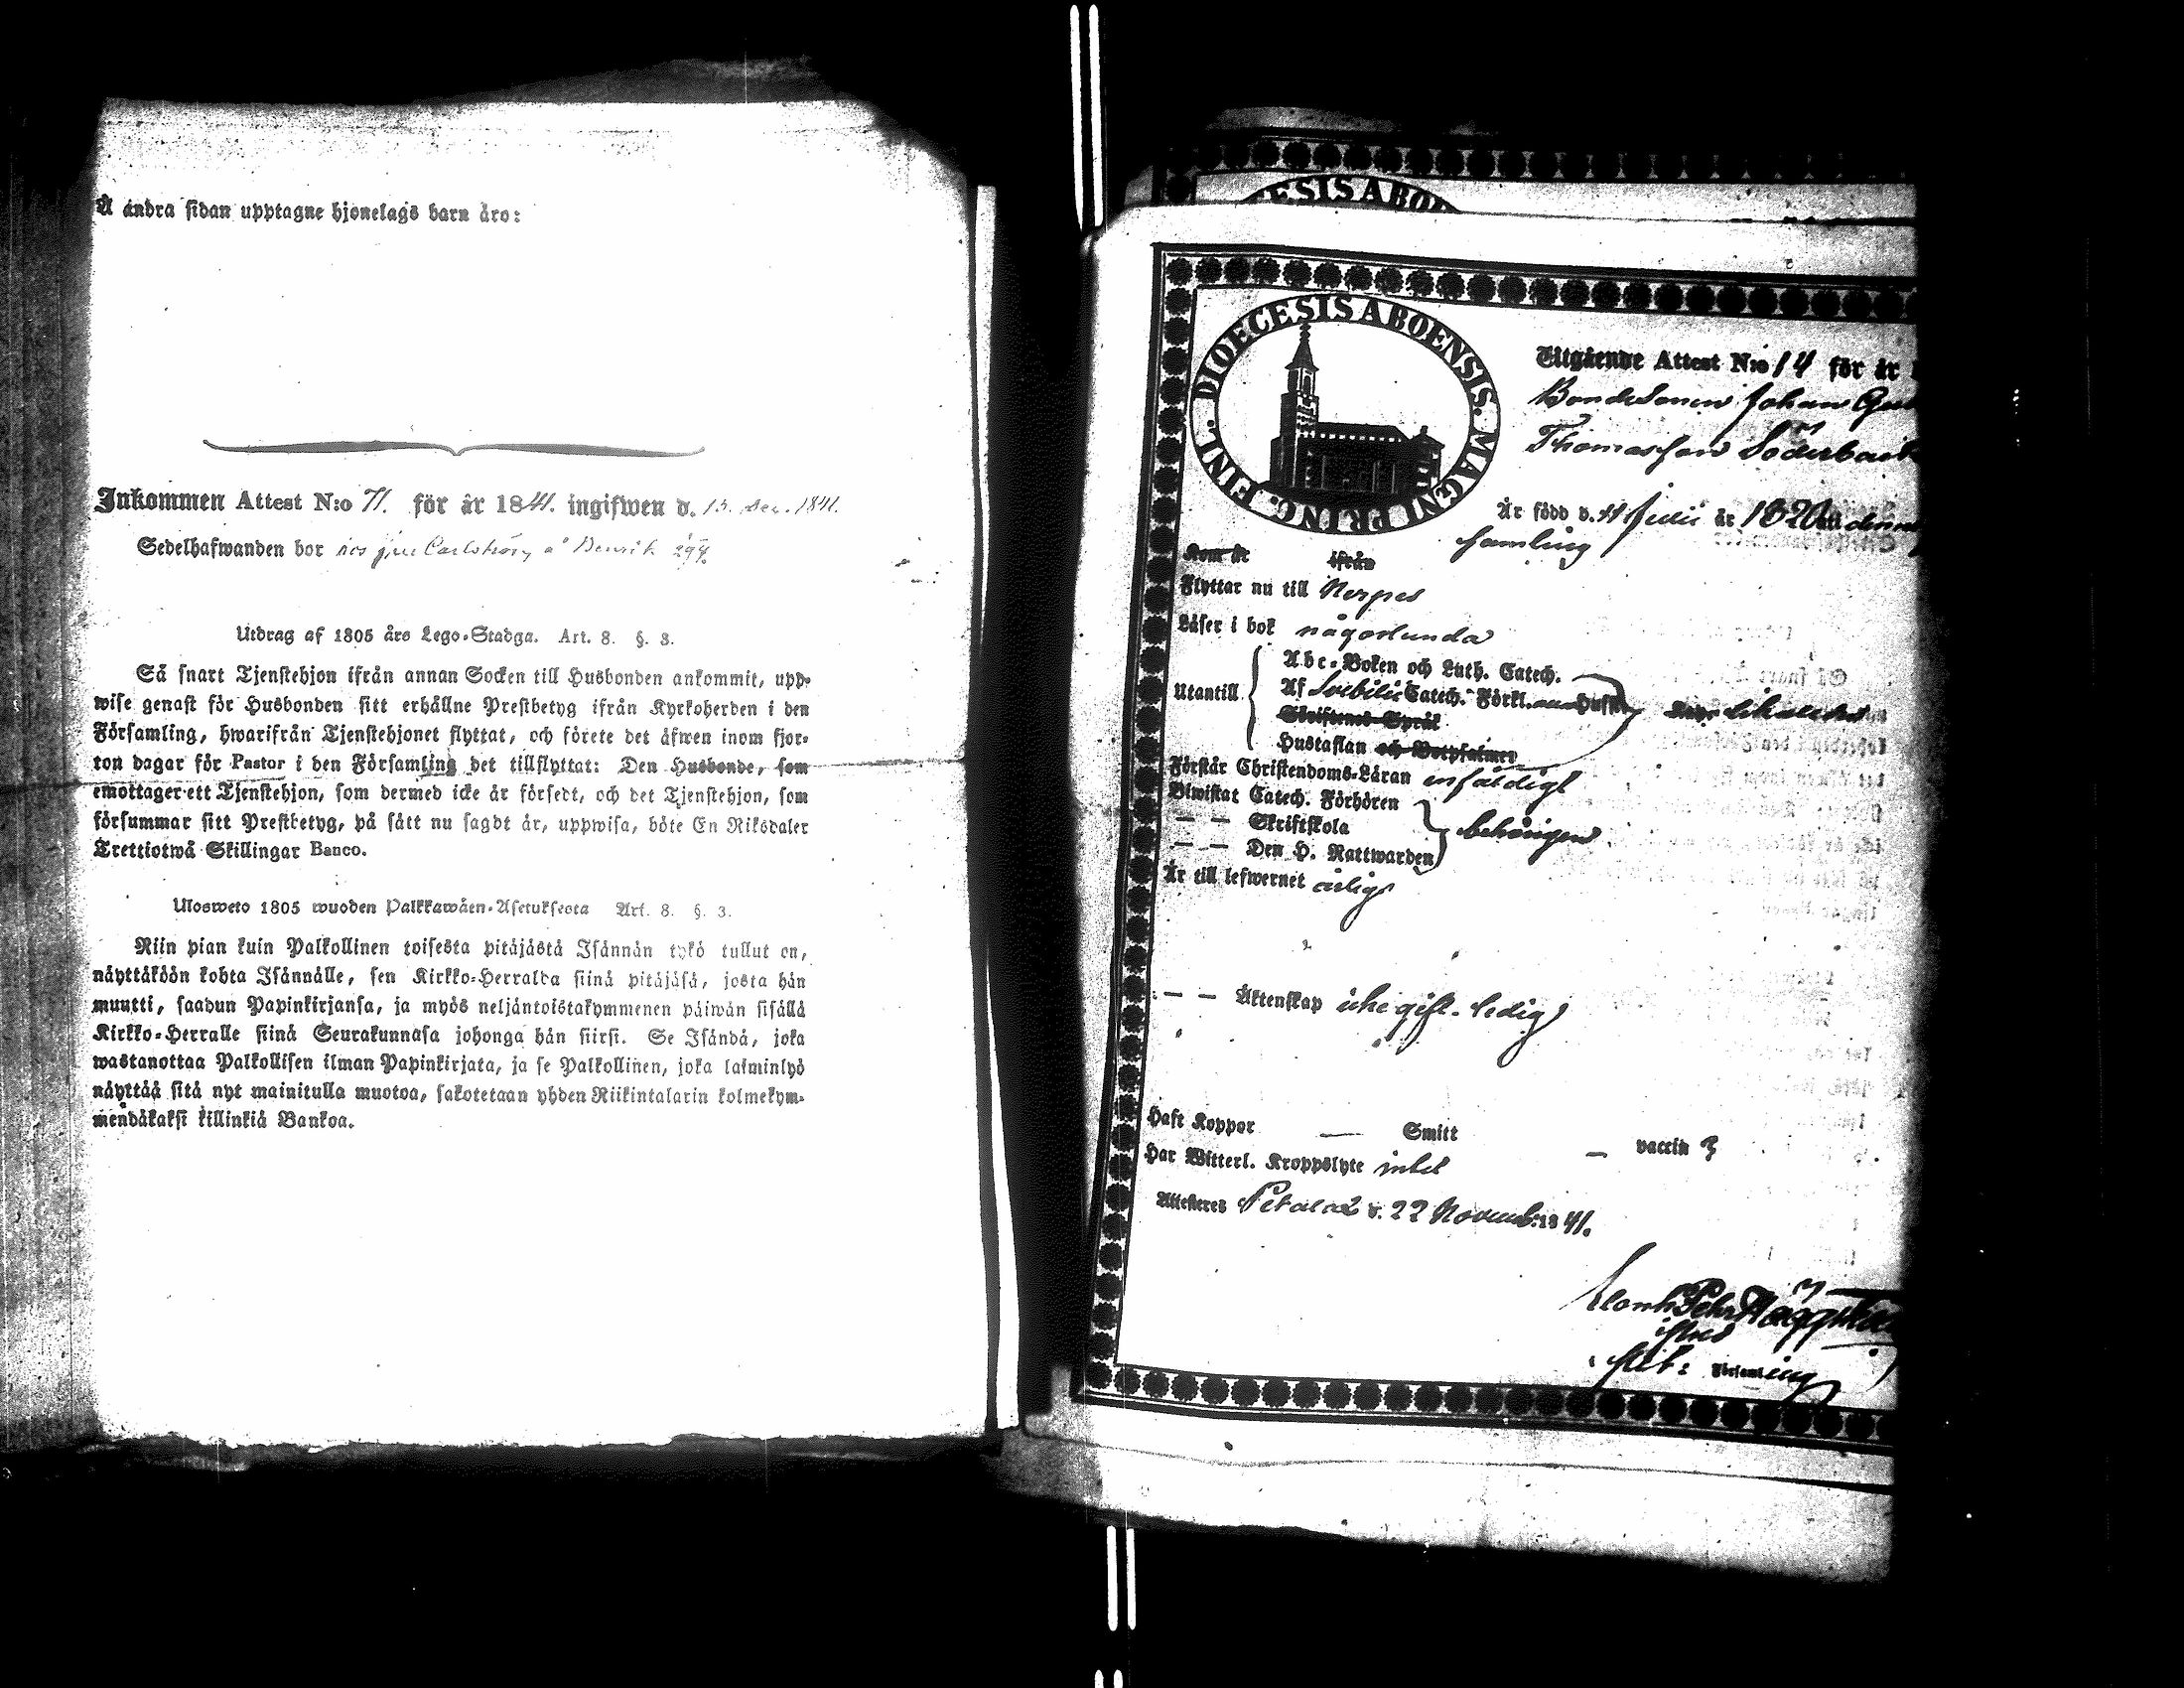 Å andra sidan upptagne hjonelags barn äro:
Inkommen Attest N:o 71. för år 1841. ingifwen d. 13. Dec. 1841.
Sedelhafwanden bor hos Carlström å
Utdrag af 1805 års Lego-Stadga. Art. 8. §. 3.
Så snart Tjenstehjon ifrån annan Socken till Husbonden ankommit, upp-
wise genast för Husbonden sitt erhållne Prestbetyg ifrån Kyrkoherden i den
Församling, hwarifrån Tjenstehjonet flyttat, och förete det äfwen inom fjor-
ton dagar för Pastor i den Församling det tillflyttat: Den Husbonde, som
emottager ett Tjenstehjon, som dermed icke är försedt, och det Tjenstehjon, som
försummar sitt Prestbetyg, på sätt nu sagdt är, uppwisa, böte En Riksdaler
Trettiotwå Skillingar Banco.
Ulosweto 1805 wuoden Palkkawäen-Asetuksesta Art. 8. §. 3.
Niin pian kuin Palkollinen toisesta pitäjästä Isännän tykö tullut on,
näyttäköön kohta Isännälle, sen Kirkko-Herralda siinä pitäjäsä, josta hän
muutti, saadun Papinkirjansa, ja myös neljäntoistakymmenen päiwän sisällä
Kirkko-Herralle siinä Seurakunnasa johonga hän siirsi. Se Isändä, joka
wastanottaa Palkollisen ilman Papinkirjata, ja se Palkollinen, joka laiminlyö
näyttää sitä nyt mainitulla muotoa, sakotetaan yhden Riikintalarin kolmekym-
mendäkaksi killinkiä Bankoa.
ESIS ABO
DIOECESIS ABOENSIS. MAGNI PRINC. FINL.
Utgående Attest N:o 14 för år
Bondesonen Johan
Thomasson
Är född d. Julii år 1820
samling
Kom år ifrån
Flyttar nu till Nerpes
Läser i bok någorlunda
Utantill
Abc-Boken och Luth. Catech.
Af Svebilii Catech. Förkl.
Skriftenes Språk
Hustaflan och Botpsalmer
Förstår Christendoms-Läran enfäldigt
Biwistat Catech. Förhören
— — Skriftskola behörigen
— — Den H. Nattwarden
Är till lefwernet ärligt
— — Äktenskap icke gift. ledig
Haft Koppor — Smitt — vaccin 3
Har Witterl. Kroppslyte intet
Attesteres Petalax d. 22 Novemb: 1841.
Pehr
Församling